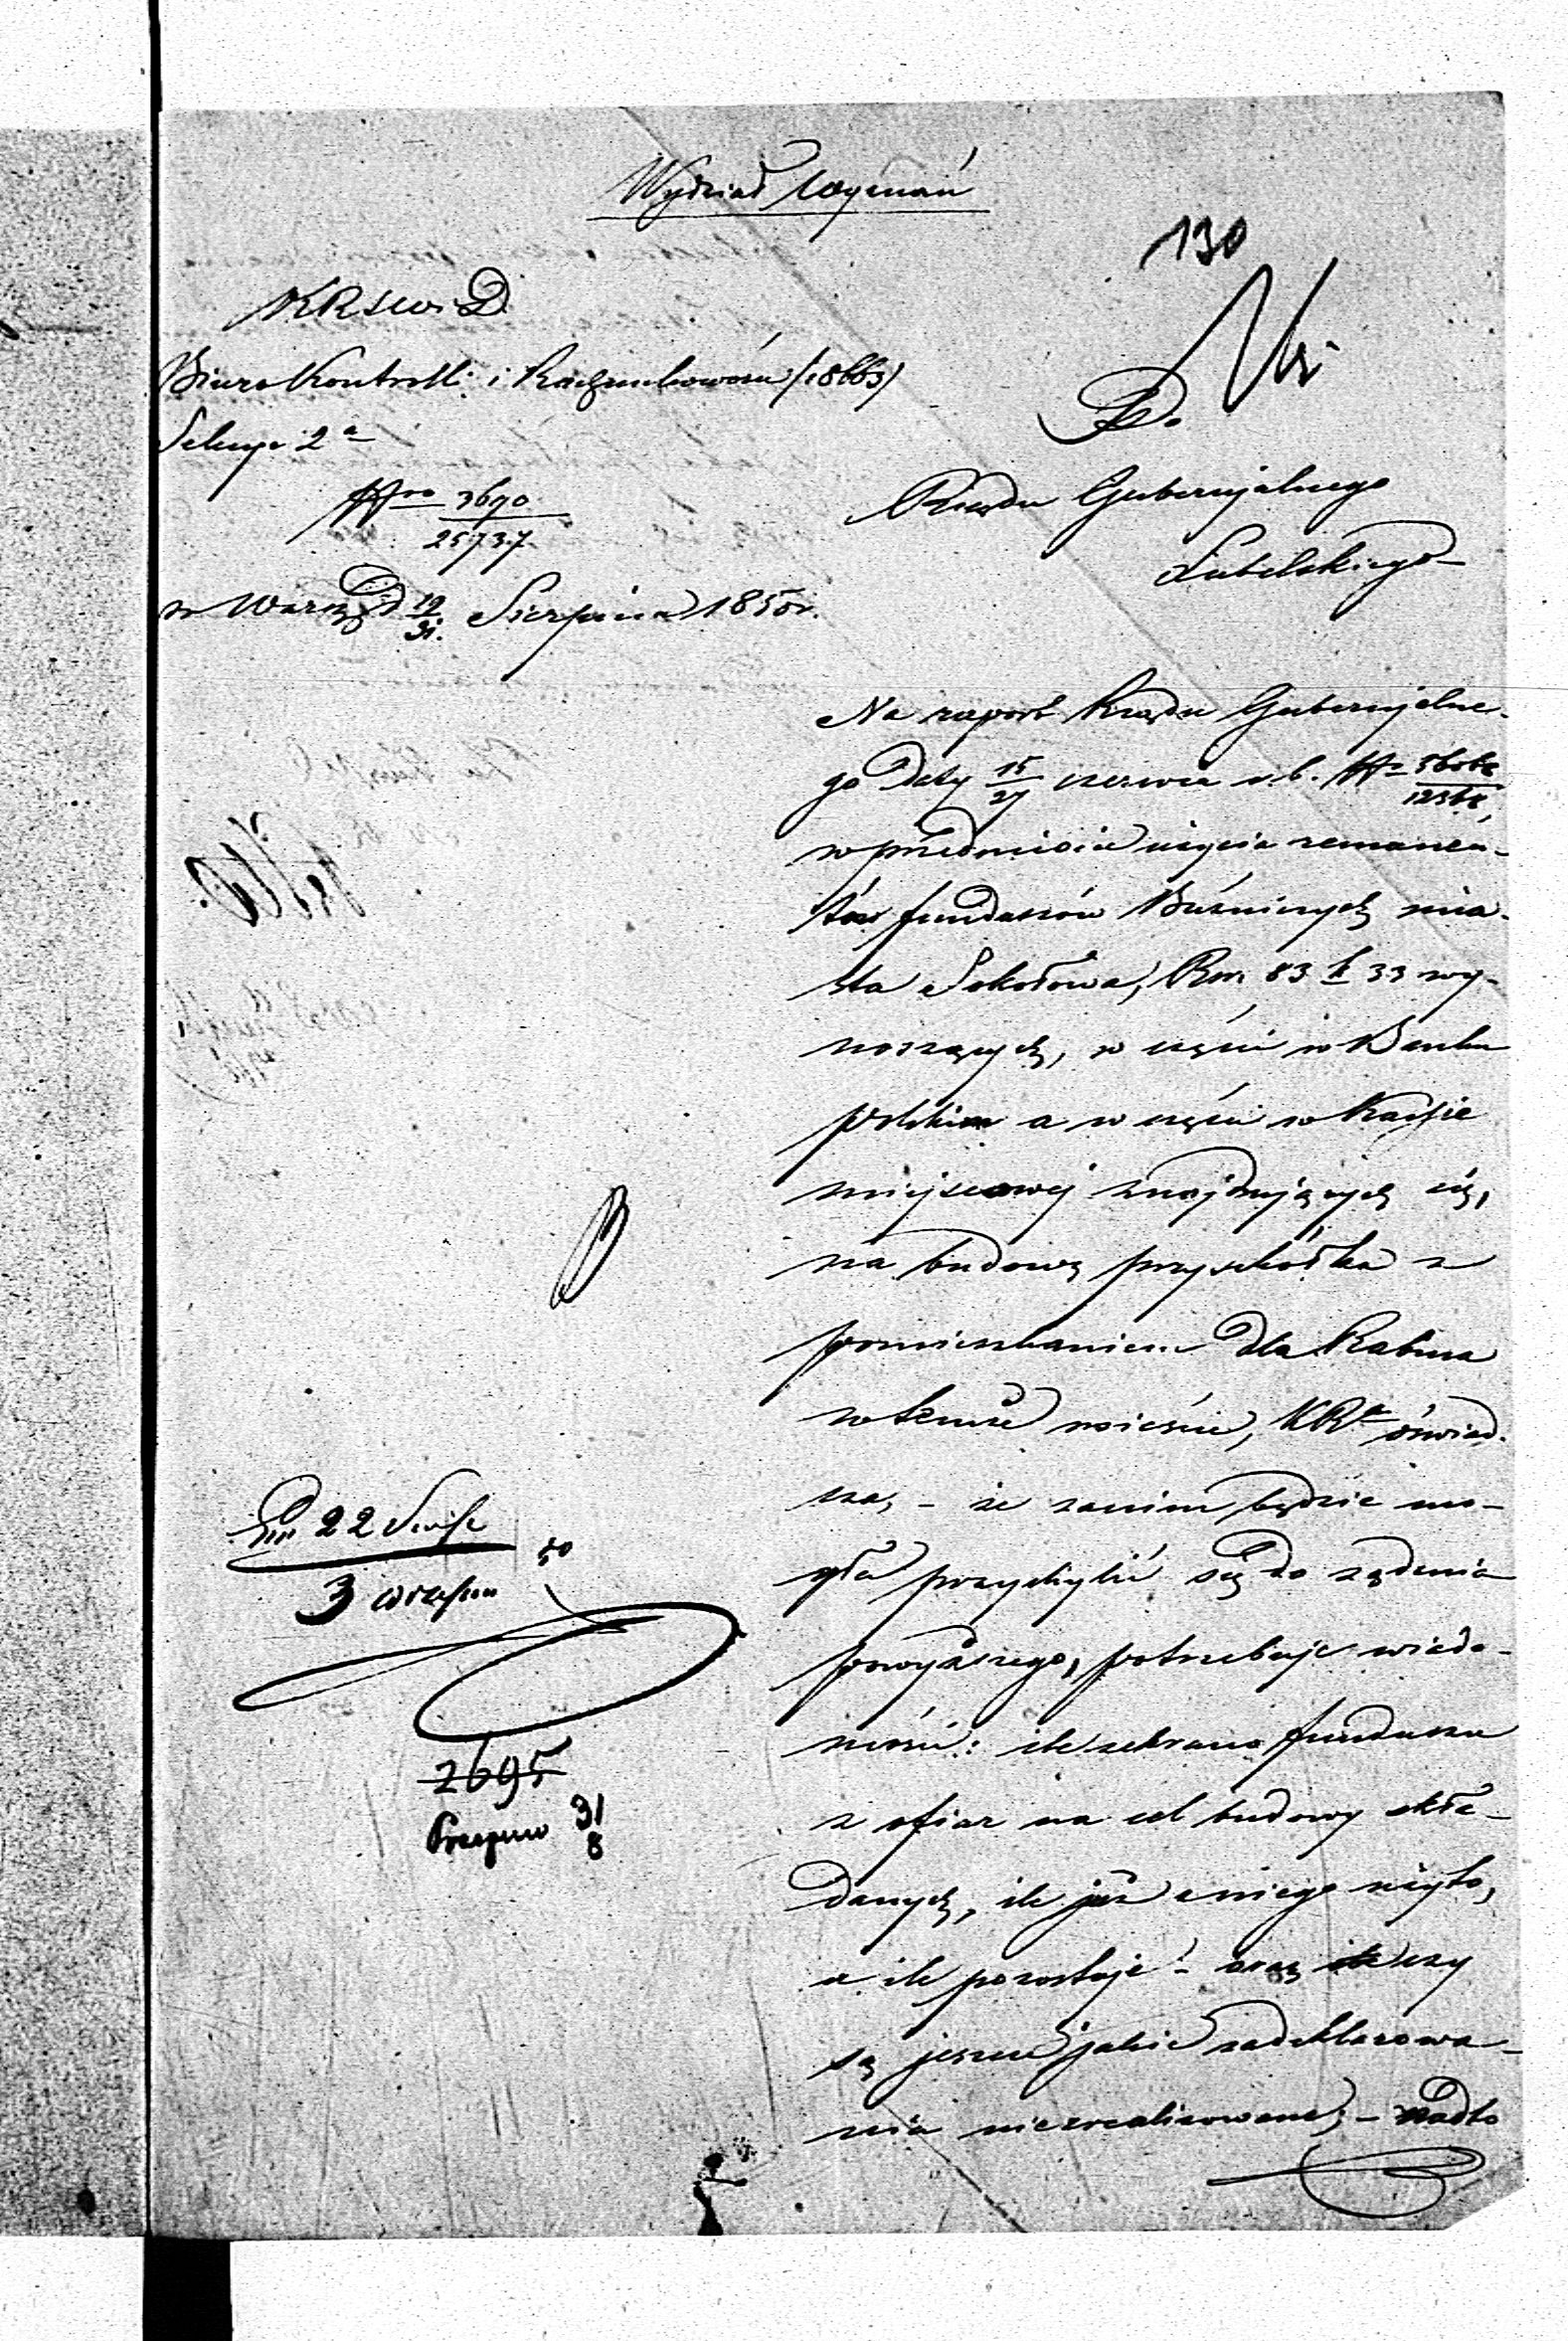 Wydział Wyznań
130
KRSW i D.
Biuro Kontrolli i Rachunkowości (18663)
Sekcya 2a
Nro 3690
25737
w Warsz. d 19
31. Sierpnia 1850 r.
Do
Rządu Gubernjalnego
Lubelskiego
Na raport Rządu Gubernjalne-
go daty 15/27 czerwca r. b. No
w przedmiocie użycia remanen-
tów funduszów Bóżniczych mia-
sta Sokołowa, Rsr. 83 k 33 wy-
noszących, w części w Banku
polskim a w części w Kassie
miejscowej znajdujących się,
na budowę przyszkółka z
pomieszkaniem dla Rabina
w temże mieście, KRa oświad-
cza, - że zanim będzie mo-
gła przychylić się do żądania
powyższego, potrzebuje wiado-
mości: ile zebrano funduszu
z ofiar na cel budowy skła-
danych, ile już z niego użyto,
a ile pozostaje - oraz czy
są jeszcze jakie zadeklarowa-
nia niezrealizowane; - nadto
22 Sierp
3 Wrześn 50
2695
31
8